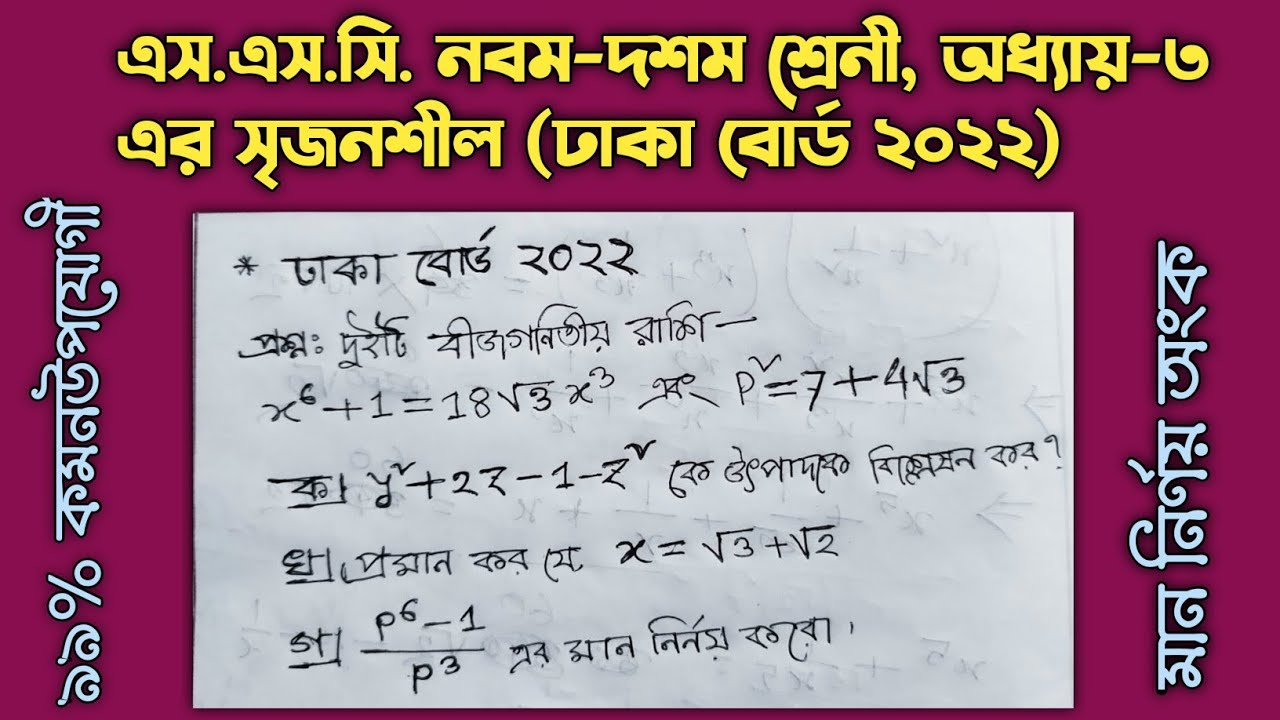 এস.এস.সি. নবম-দশম শ্রেনী, অধ্যায়-৩
এর সৃজনশীল (ঢাকা বোর্ড ২০২২)
৯৯% কমনউপযোগী
* ঢাকা বোর্ড ২০২২
প্রশ্ন: দুইটি বীজগনিতীয় রাশি—
x⁶+1=18√3 x³ এবং P²=7+4√3
ক| y²+2z-1-z² কে উৎপাদকে বিশ্লেষন কর?
খ| প্রমান কর যে x=√3+√2
গ| (P⁶-1)/P³ এর মান নির্নয় করো।
মান নির্ণয় অংক